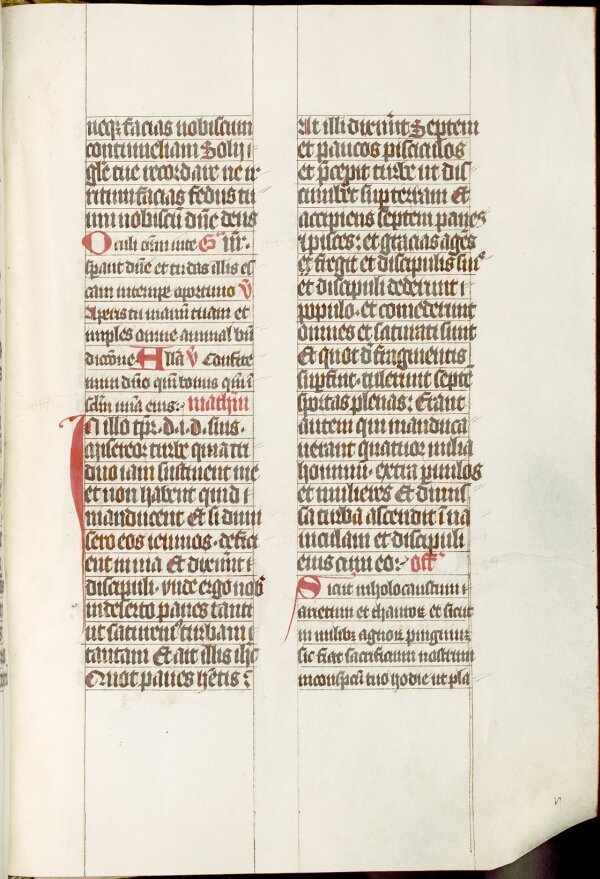 neqꝫ facias nobiscum
contumeliam Solij
gl̄e tue recordare ne ir
ritum facias fedus tu
um nobiscū dn̄e deus
Oculi oīm in te Gᵃ
sp̄ant dn̄e et tu das illis es
cam in temp̄e oportuno V̄
Aperis tu manū tuam et
imples omne animal
Allā V̄ Confite
mini dn̄o qm̄ bonus qm̄ ī
sc̄lm mīa eius: mathm
In illo tp̄r. d. i. d. suis.
Misereor turbe quia tri
duo iam sustinent me
et non habent quid
manducent Et si dimi
sero eos ieiunos. defici
ent in uia Et dixerūt
discipuli. vnde ergo nob
in deserto panes tanto
ut saturem turbam
tantam Et ait illis ih̄c
Quot panes hētis
At illi dixerūt Septem
et paucos pisciculos
et p̄cepit turbe ut dis
cumbēt sup terram Et
accipiens septem panes
et gracias agēs
et fregit et discipulis suis
et discipuli dederunt
populo. et comederunt
omnes et saturati sunt
Et quot d̄ fragmentis
supfuit. tulerunt septē
sportas plenas: Erant
autem qui manduca
uerant quatuor milia
hominū. extra puulos
et mulieres Et dimis
sa turba ascendit ī na
uiculam et discipuli
eius cum eo: off̄
Sicut in holocaustum
arietum et thauroꝝ et sicut
in milibꝫ agnoꝝ pinguiuꝫ
sic fiat sacrificium nostrum
in conspcū tuo hodie ut pla